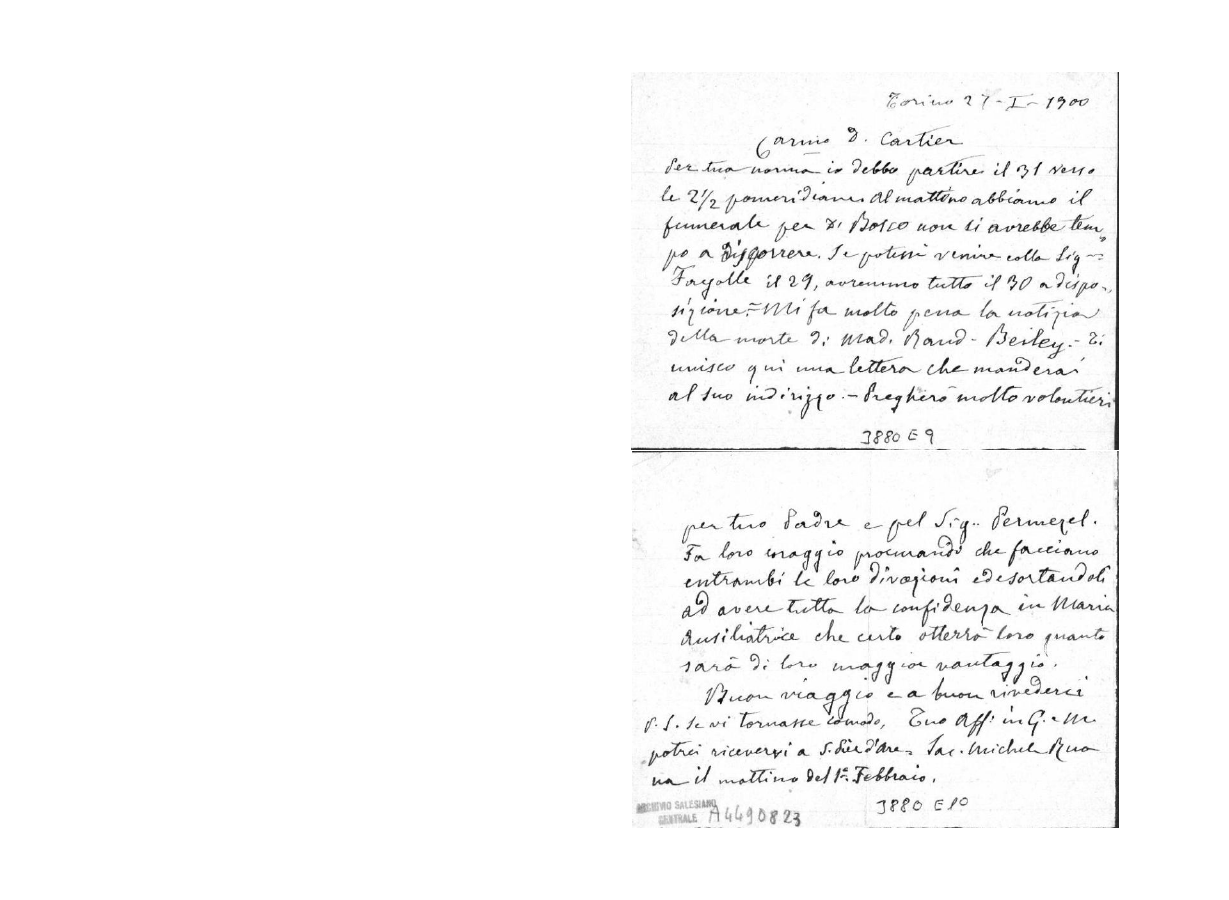 Torino 27-I-1900
Carmo D. Cartier
Per tua norma io debbo partire il 31 verso
le 2 1/2 pomeridiane. Al mattino abbiamo il
funerale per D. Bosco non si avrebbe tem-
po a discorrere. Se potessi venire colla Sig.ra
Fayolle il 29, avremmo tutto il 30 a dispo-
sizione. - Mi fa molto pena la notizia
della morte di Mad. Rand - Beiley. - Ti
unisco qui una lettera che manderai
al suo indirizzo. - Pregherò molto volontieri
3880 E 9
per tuo Padre e pel Sig. Permezel.
Fa loro coraggio procurando che facciano
entrambi le loro divozioni ed esortandoli
ad avere tutta la confidenza in Maria
Ausiliatrice che certo otterrà loro quanto
sarà di loro maggior vantaggio.
Buon viaggio e a buon rivederci
P.S. Se vi tornasse comodo, Tuo Aff. in G. e M.
potrei ricevervi a S. Pier d'Are- Sac. Michele Rua
na il mattino del 1° Febbraio.
3880 E 10
ARCHIVIO SALESIANO
CENTRALE A4490823